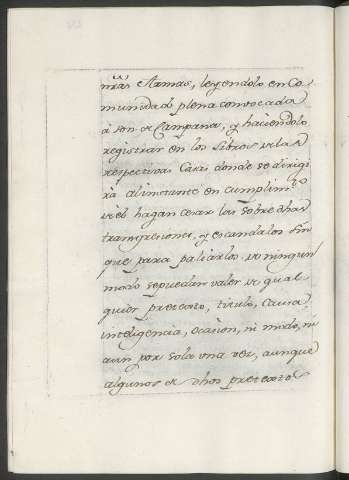 nrâs Armas, leyendolo en Co-
munidad plena convocada
à son de Campana, y haciendolo
registrar en los Libros de las
respectivas Casas donde se dirigi
rà al instante en cumplimto
hagan cesar las sobre dhas
transgresiones, y escandalos sin
que para paliarlos, de ningun
modo se puedan valer de qual
quier pretexto, titulo, causa,
inteligencia, ocasion, ni modo, ni
aun por sola una vez, aunque
algunos de dhos pretextos